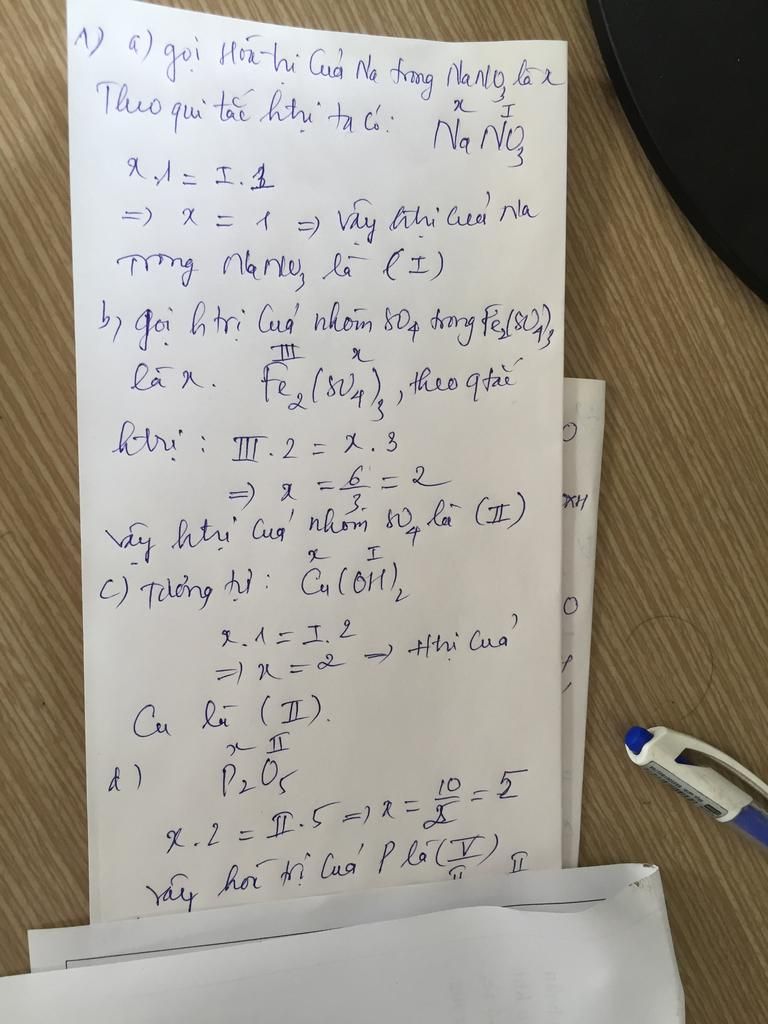 1) a) gọi Hóa trị của Na trong NaNO3 là x
Theo qui tắc htrị ta có: x I NaNO3
x.1 = I.1
=> x = 1 => Vậy htrị của Na
trong NaNO3 là (I)
b, gọi htrị của nhóm SO4 trong Fe2(SO4)3
là x. III x Fe2(SO4)3, theo qtắc
htrị: III.2 = x.3
=> x = 6/3 = 2
Vậy htrị của nhóm SO4 là (II)
c) Tương tự: x I Cu(OH)2
x.1 = I.2
=> x = 2 => Htrị của
Cu là (II).
d) x II P2O5
x.2 = II.5 => x = 10/2 = 5
Vậy hóa trị của P là (V)
II II
O
O